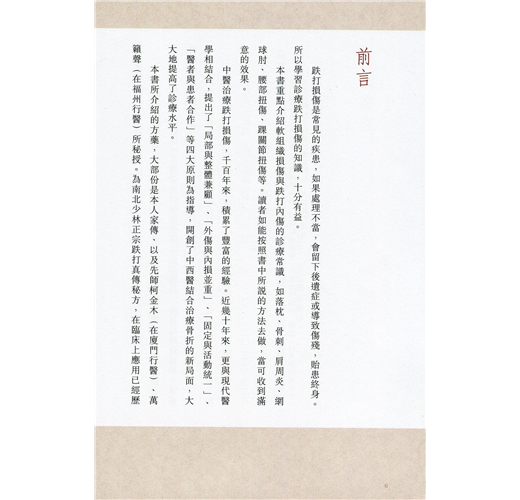 前言
跌打損傷是常見的疾患，如果處理不當，會留下後遺症或導致傷殘，貽患終身。
所以學習診療跌打損傷的知識，十分有益。
本書重點介紹軟組織損傷與跌打內傷的診療常識，如落枕、骨刺、肩周炎、網
球肘、腰部扭傷、踝關節扭傷等。讀者如能按照書中所說的方法去做，當可收到滿
意的效果。
中醫治療跌打損傷，千百年來，積累了豐富的經驗。近幾十年來，更與現代醫
學相結合，提出了「局部與整體兼顧」、「外傷與內損並重」、「固定與活動統一」、
「醫者與患者合作」等四大原則為指導，開創了中西醫結合治療骨折的新局面，大
大地提高了診療水平。
本書所介紹的方藥，大部份是本人家傳、以及先師柯金木（在廈門行醫）、萬
籟聲（在福州行醫）所秘授。為南北少林正宗跌打真傳秘方，在臨床上應用已經歷
6